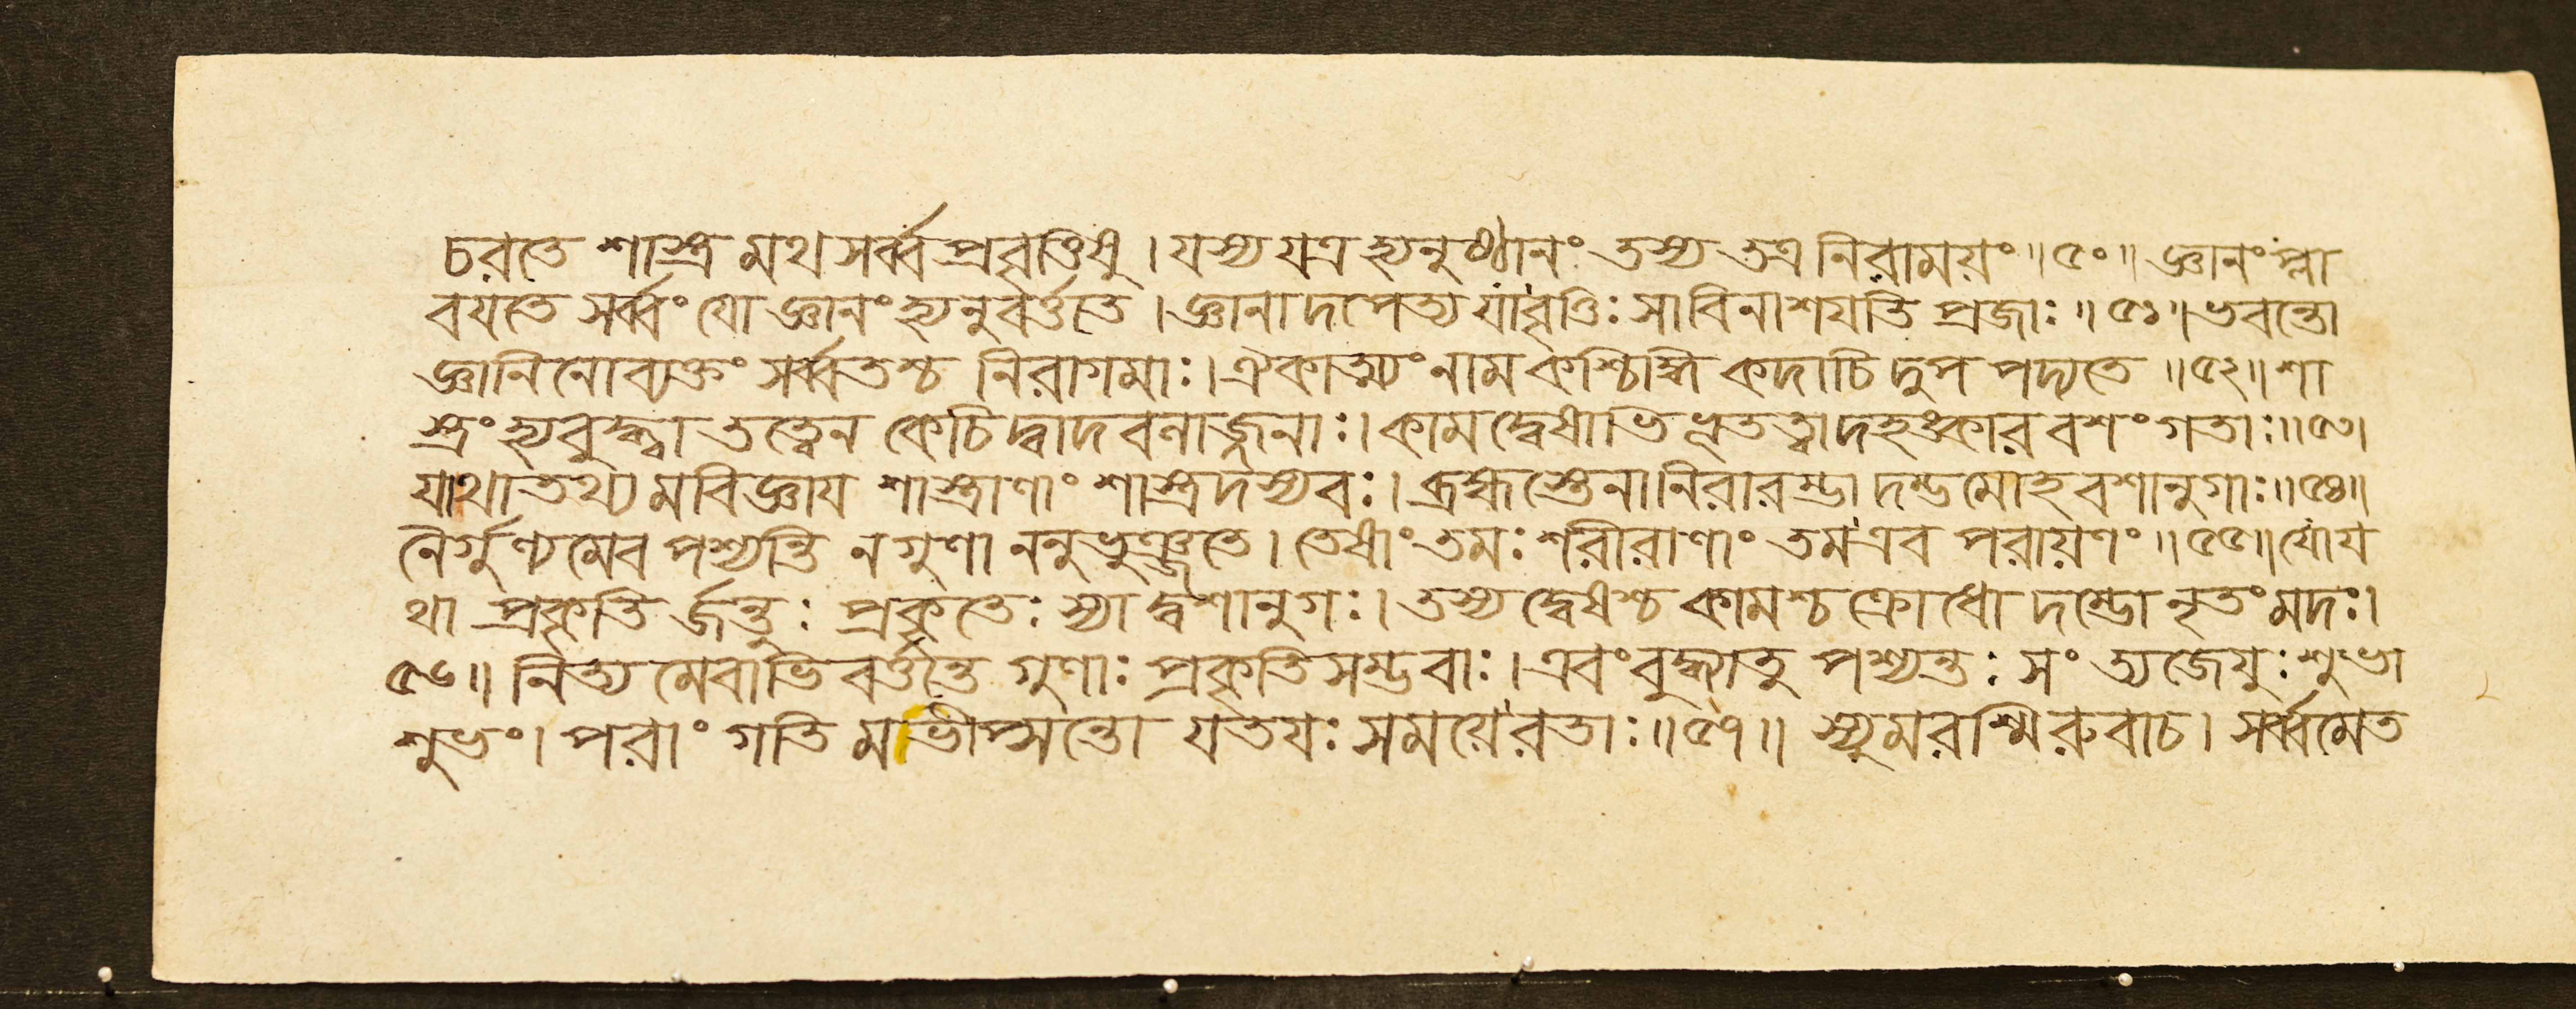 চরতে শাস্ত্র মথ সর্ব্ব প্রবৃত্তিষু । যস্য যত্র হ্যনুষ্ঠানং তস্য তত্র নিরাময়ং ॥ ৫০ ॥ জ্ঞানং প্লা
বয়তে সর্ব্বং যো জ্ঞানং হ্যনুবর্ত্ততে । জ্ঞানা দপেত্য যা বৃত্তিঃ সা বিনাশযতি প্রজাঃ ॥ ৫১ ॥ ভবন্তো
জ্ঞানিনো ব্যক্তং সর্ব্বতশ্চ নিরাগমাঃ । ঐকাত্ম্যং নাম কশ্চিদ্ধি কদাচি দুপ পদ্যতে ॥ ৫২ ॥ শা
স্ত্রং হ্যবুদ্ধ্বা তত্ত্বেন কেচি দ্বাদ বলাজ্জনাঃ । কাম দ্বেষাভি ভূতত্বা দহঙ্কার বশং গতাঃ ॥ ৫৩ ।
যাথা তথ্য মবিজ্ঞায শাস্ত্রাণাং শাস্ত্র দস্যবঃ । ব্রহ্মস্তেনা নিরারম্ভা দম্ভ মোহ বশানুগাঃ ॥ ৫৪ ॥
নৈর্গুণ্য মেব পশ্যন্তি ন গুণা ননুভুঞ্জতে । তেষাং তমঃ শরীরাণাং তম এব পরায়ণং ॥ ৫৫ ॥ যো য
থা প্রকৃতি র্জন্তুঃ প্রকৃতেঃ স্যা দ্বশানুগঃ । তস্য দ্বেষশ্চ কামশ্চ ক্রোধো দম্ভো নৃতং মদঃ ।
৫৬ ॥ নিত্য মেবাভি বর্ত্তন্তে গুণাঃ প্রকৃতি সম্ভবাঃ । এবং বুদ্ধ্যাতু পশ্যন্তঃ সং ত্যজেযুঃ শুভা
শুভং । পরাং গতি মাভীপ্সন্তো যতযঃ সময়ে রতাঃ ॥ ৫৭ ॥ স্যুমরশ্মি রুবাচ । সর্ব্বমেত